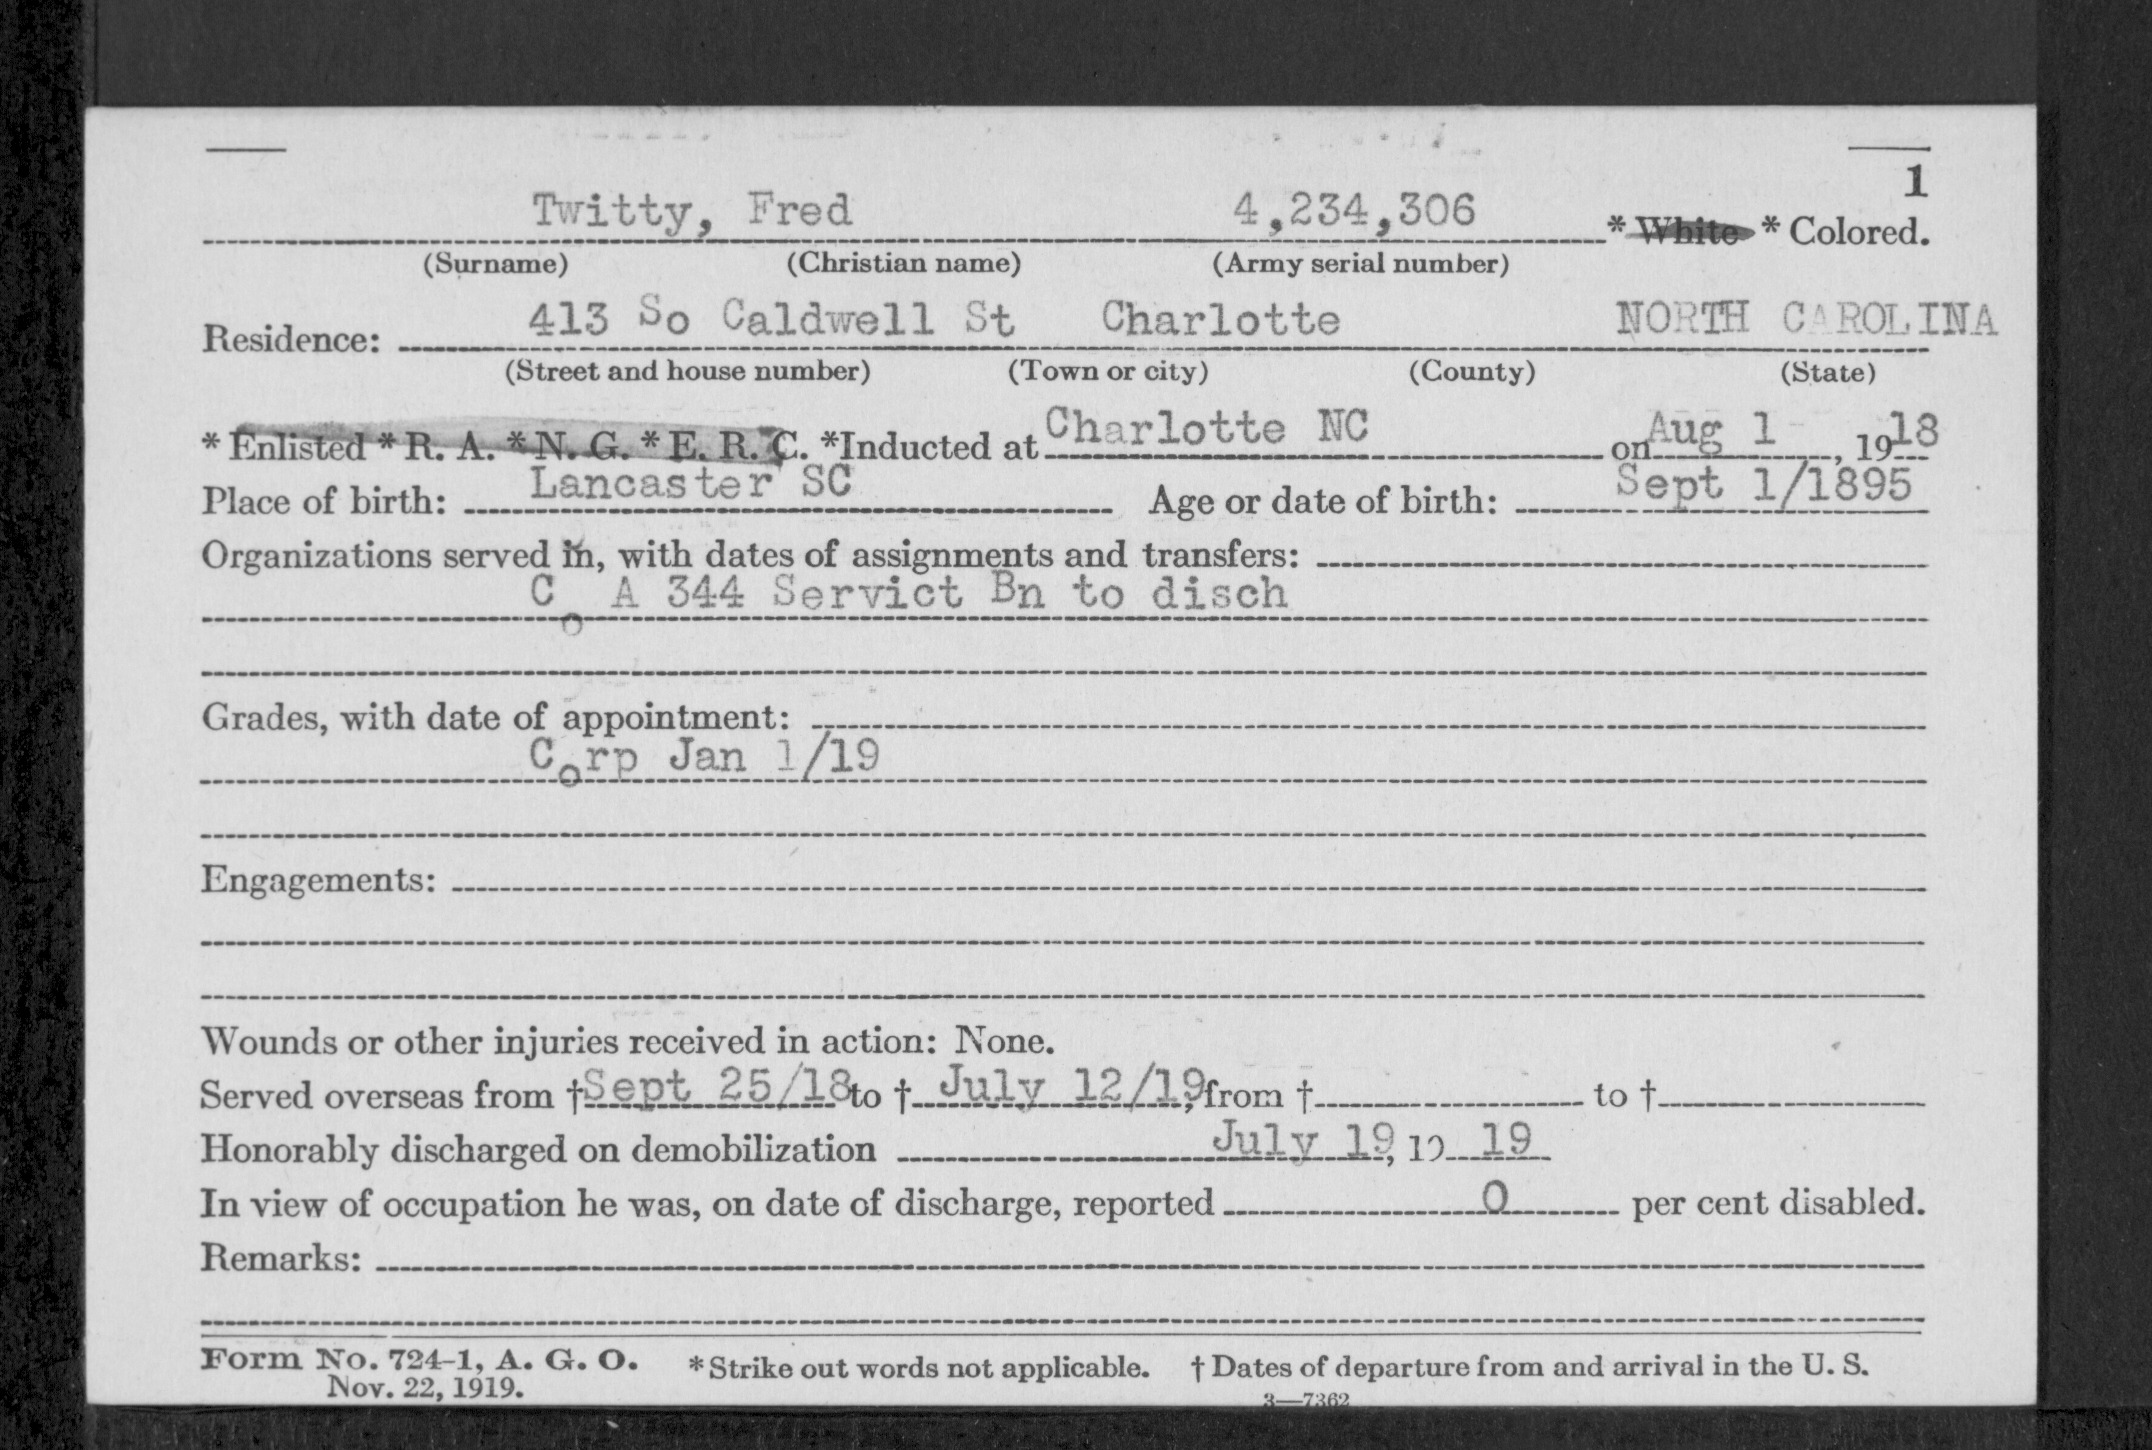 1
Twitty, Fred 4,234,306 * White * Colored.
(Surname) (Christian name) (Army serial number)
Residence: 413 So Caldwell St Charlotte NORTH CAROLINA
(Street and house number) (Town or city) (County) (State)
* Enlisted * R. A. * N. G. * E. R. C. *Inducted at Charlotte NC on Aug 1 , 1918
Place of birth: Lancaster SC Age or date of birth: Sept 1/1895
Organizations served in, with dates of assignments and transfers:
Co A 344 Servict Bn to disch
Grades, with date of appointment:
Corp Jan 1/19
Engagements:
Wounds or other injuries received in action: None.
Served overseas from † Sept 25/18 to † July 12/19, from † to †
Honorably discharged on demobilization July 19, 19 19
In view of occupation he was, on date of discharge, reported 0 per cent disabled.
Remarks:
Form No. 724-1, A. G. O. * Strike out words not applicable. † Dates of departure from and arrival in the U. S.
Nov. 22, 1919.
3—7362